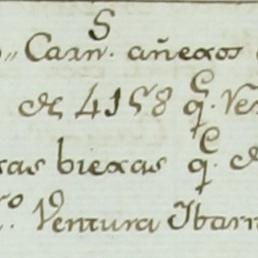 Carn.^s añexos
de 4158 q.^e Ve
sas biexas q.^e d
^o Ventura Ibarr